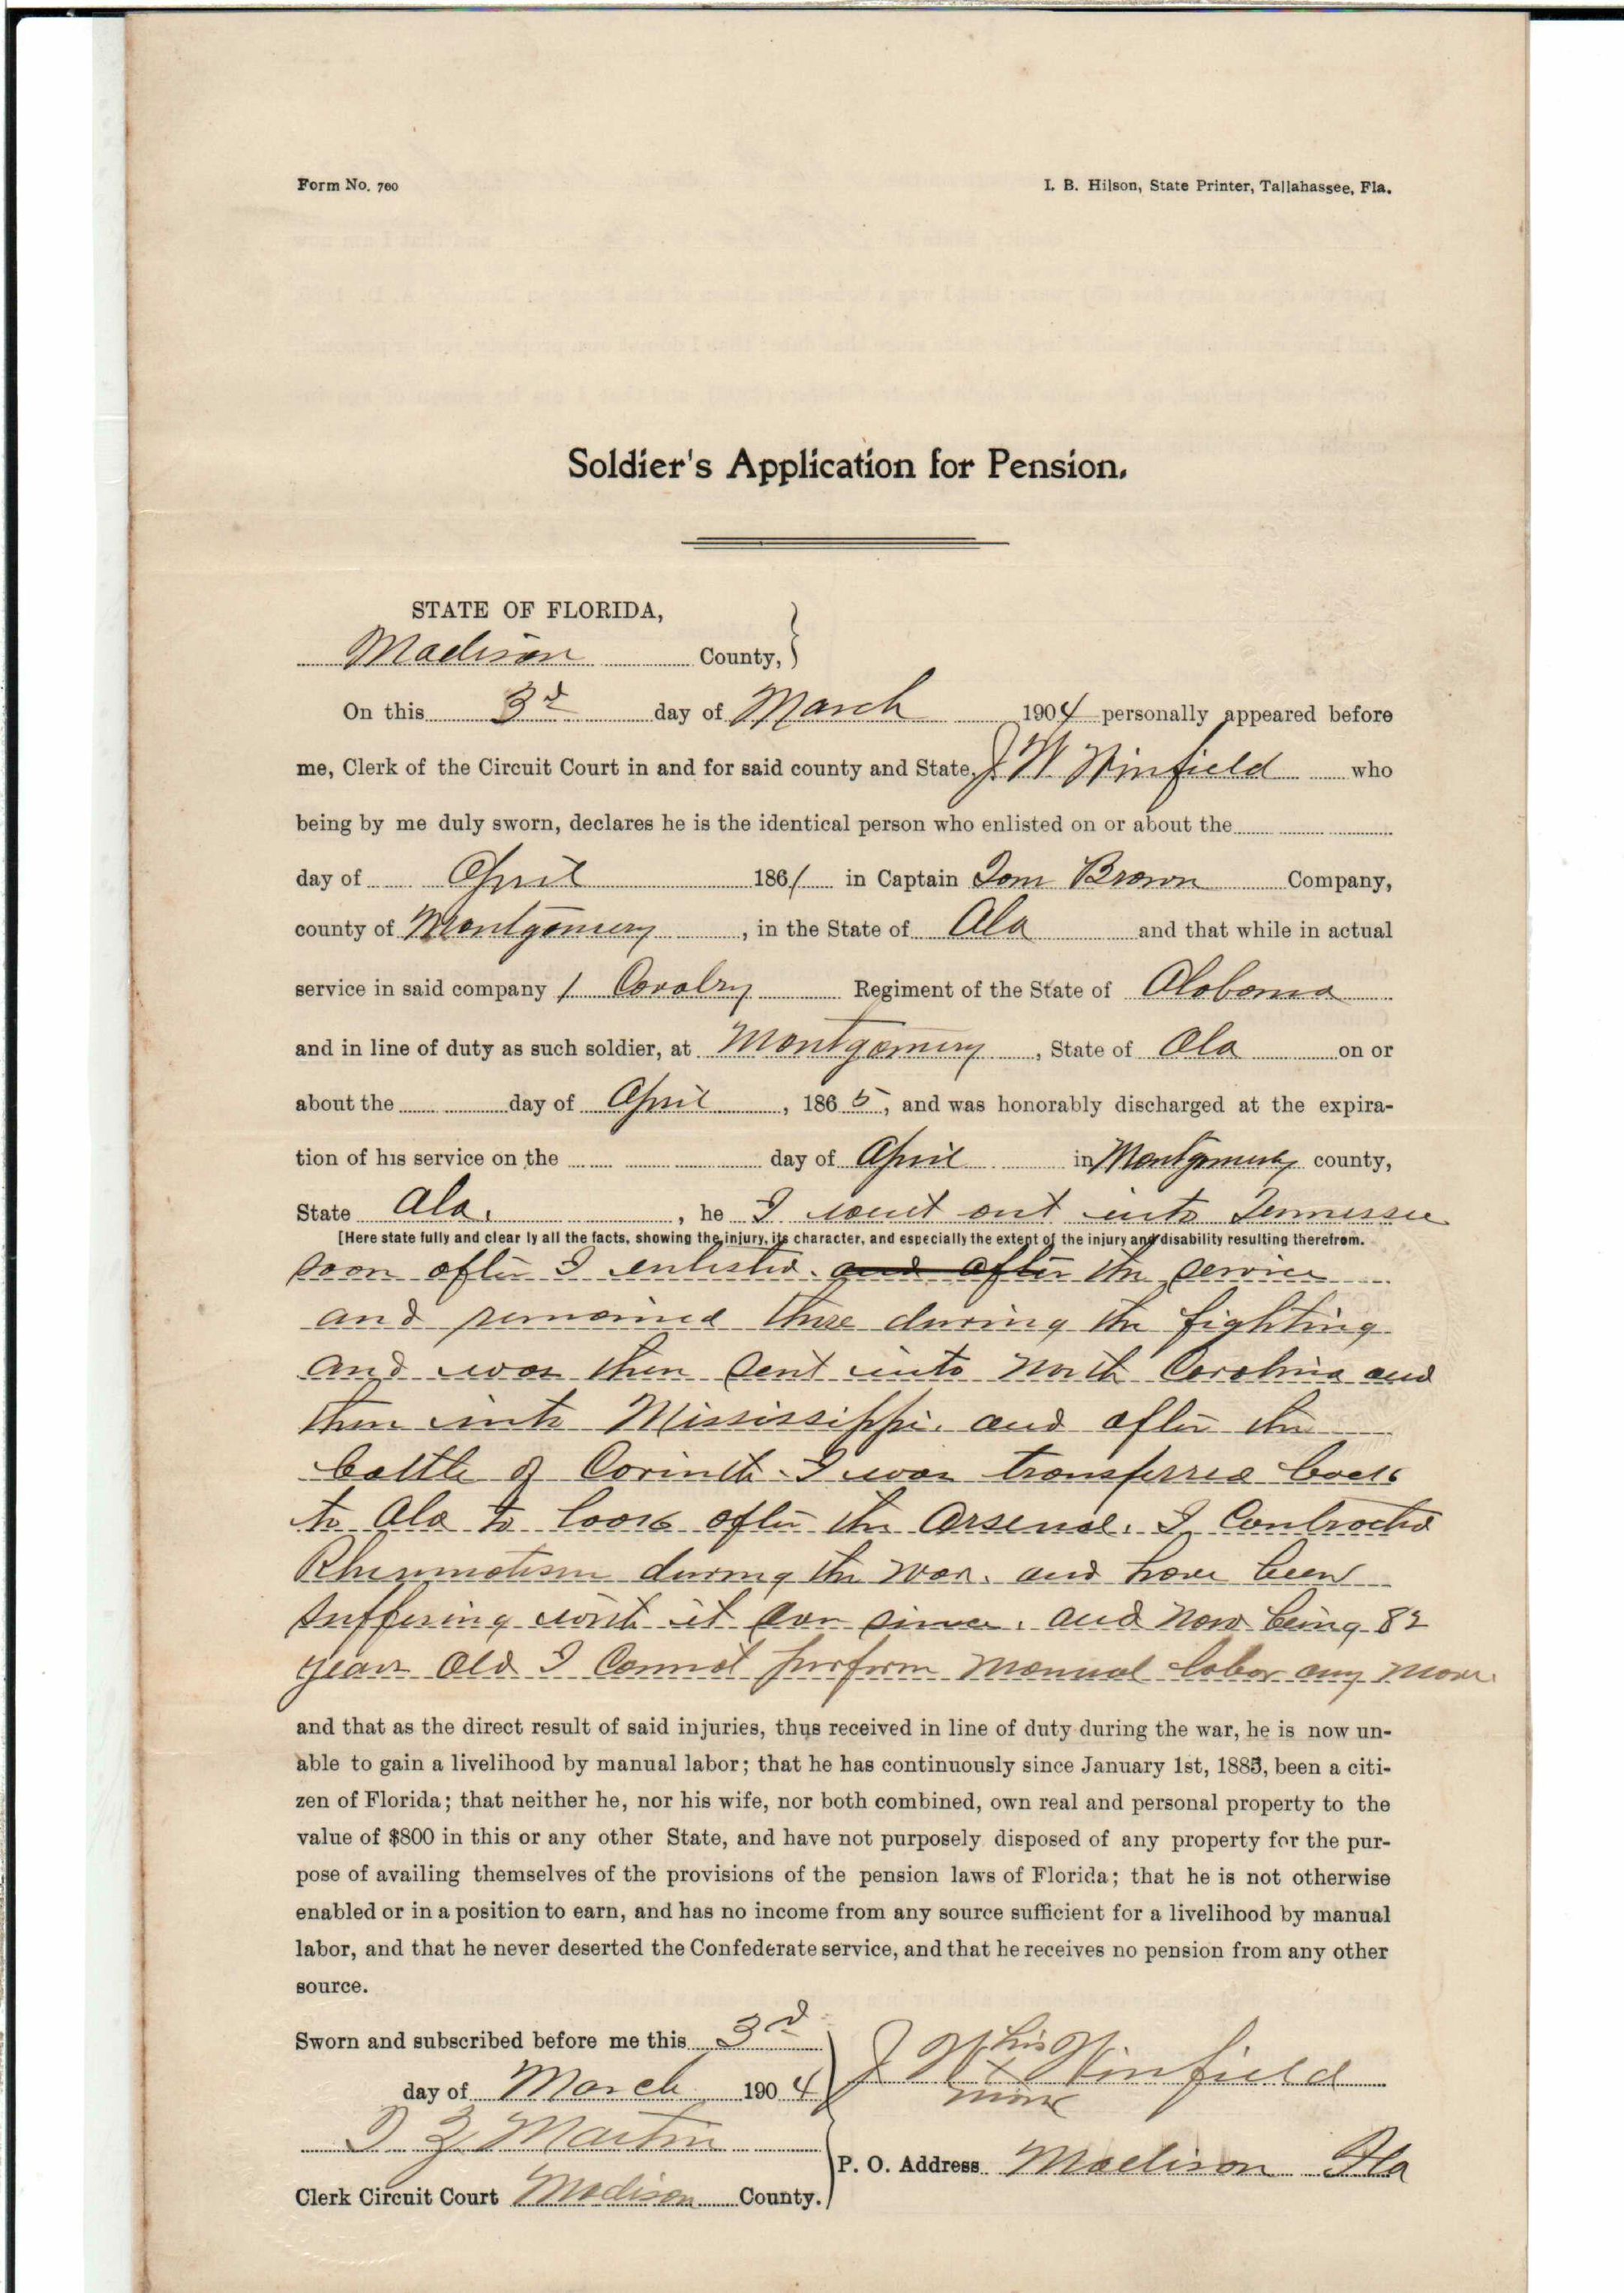 Form No. 700
I. B. Hilson, State Printer, Tallahassee, Fla.
Soldier's Application for Pension.
STATE OF FLORIDA,
Madison County,
On this 3d day of March 1904 personally appeared before
me, Clerk of the Circuit Court in and for said county and State, J W Winfield who
being by me duly sworn, declares he is the identical person who enlisted on or about the
day of April 1861 in Captain Tom Brown Company,
county of Montgomery, in the State of Ala and that while in actual
service in said company 1 Cavalry Regiment of the State of Alabama
and in line of duty as such soldier, at Montgomery, State of Ala on or
about the day of April, 1865, and was honorably discharged at the expira-
tion of his service on the day of April in Montgomery county,
State Ala. , he I went out into Tennessee
[Here state fully and clear ly all the facts, showing the injury, its character, and especially the extent of the injury and disability resulting therefrom.
soon after I enlisted. and after the service
and remained there during the fighting
and was then sent into North Carolina and
then into Mississippi. and after the
battle of Corinth I was transferred back
to Ala to look after the Arsenal. I Contracted
Rheumatism during the war. and have been
suffering with it ever since. and now being 82
years old I Cannot perform manual labor any more.
and that as the direct result of said injuries, thus received in line of duty during the war, he is now un-
able to gain a livelihood by manual labor; that he has continuously since January 1st, 1885, been a citi-
zen of Florida; that neither he, nor his wife, nor both combined, own real and personal property to the
value of $800 in this or any other State, and have not purposely disposed of any property for the pur-
pose of availing themselves of the provisions of the pension laws of Florida; that he is not otherwise
enabled or in a position to earn, and has no income from any source sufficient for a livelihood by manual
labor, and that he never deserted the Confederate service, and that he receives no pension from any other
source.
Sworn and subscribed before me this 3d
day of March 1904
J W his x mark Winfield
Martin
P. O. Address Madison Fla
Clerk Circuit Court Madison County.